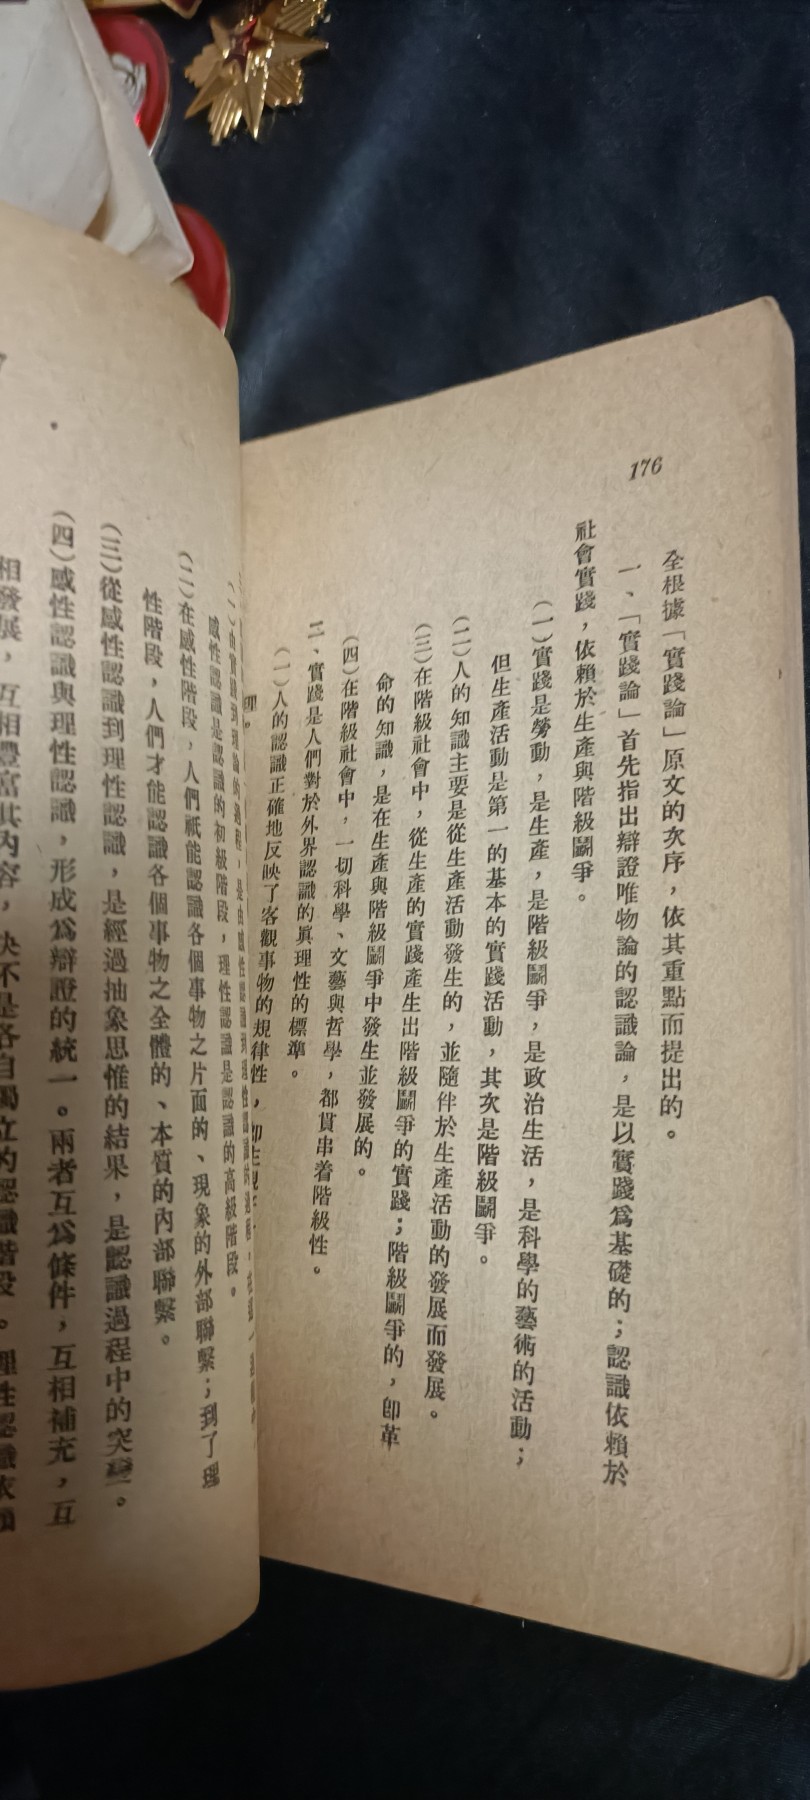 176
全根據「實踐論」原文的次序，依其重點而提出的。
一、「實踐論」首先指出辯證唯物論的認識論，是以實踐爲基礎的；認識依賴於
社會實踐，依賴於生產與階級鬭爭。
(一)實踐是勞動，是生產，是階級鬭爭，是政治生活，是科學的藝術的活動；
但生產活動是第一的基本的實踐活動，其次是階級鬭爭。
(二)人的知識主要是從生產活動發生的，並隨伴於生產活動的發展而發展。
(三)在階級社會中，從生產的實踐產生出階級鬭爭的實踐；階級鬭爭的，卽革
命的知識，是在生產與階級鬭爭中發生並發展的。
(四)在階級社會中，一切科學、文藝與哲學，都貫串着階級性。
二、實踐是人們對於外界認識的眞理性的標準。
(一)人的認識正確地反映了客觀事物的規律性，
理。
(一)由實踐到理論的過程，是由感性認識到理性認識的過程，
感性認識是認識的初級階段，理性認識是認識的高級階段。
(二)在感性階段，人們祇能認識各個事物之片面的、現象的外部聯繫；到了理
性階段，人們才能認識各個事物之全體的、本質的內部聯繫。
(三)從感性認識到理性認識，是經過抽象思惟的結果，是認識過程中的突變。
(四)感性認識與理性認識，形成爲辯證的統一。兩者互爲條件，互相補充，互
相發展，互相豐富其內容，決不是各自獨立的認識階段。理性認識依賴